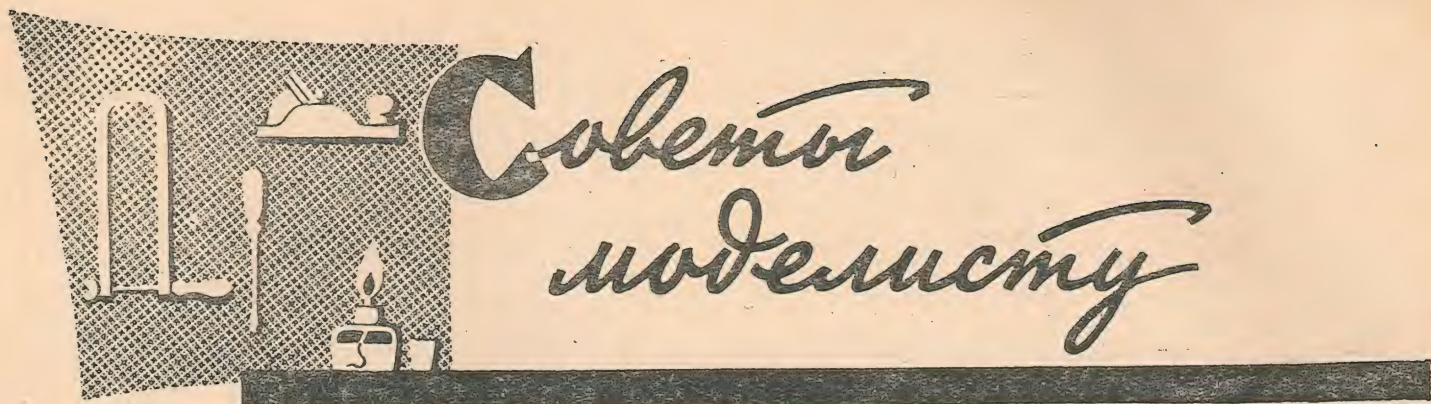 Советы
моделисту